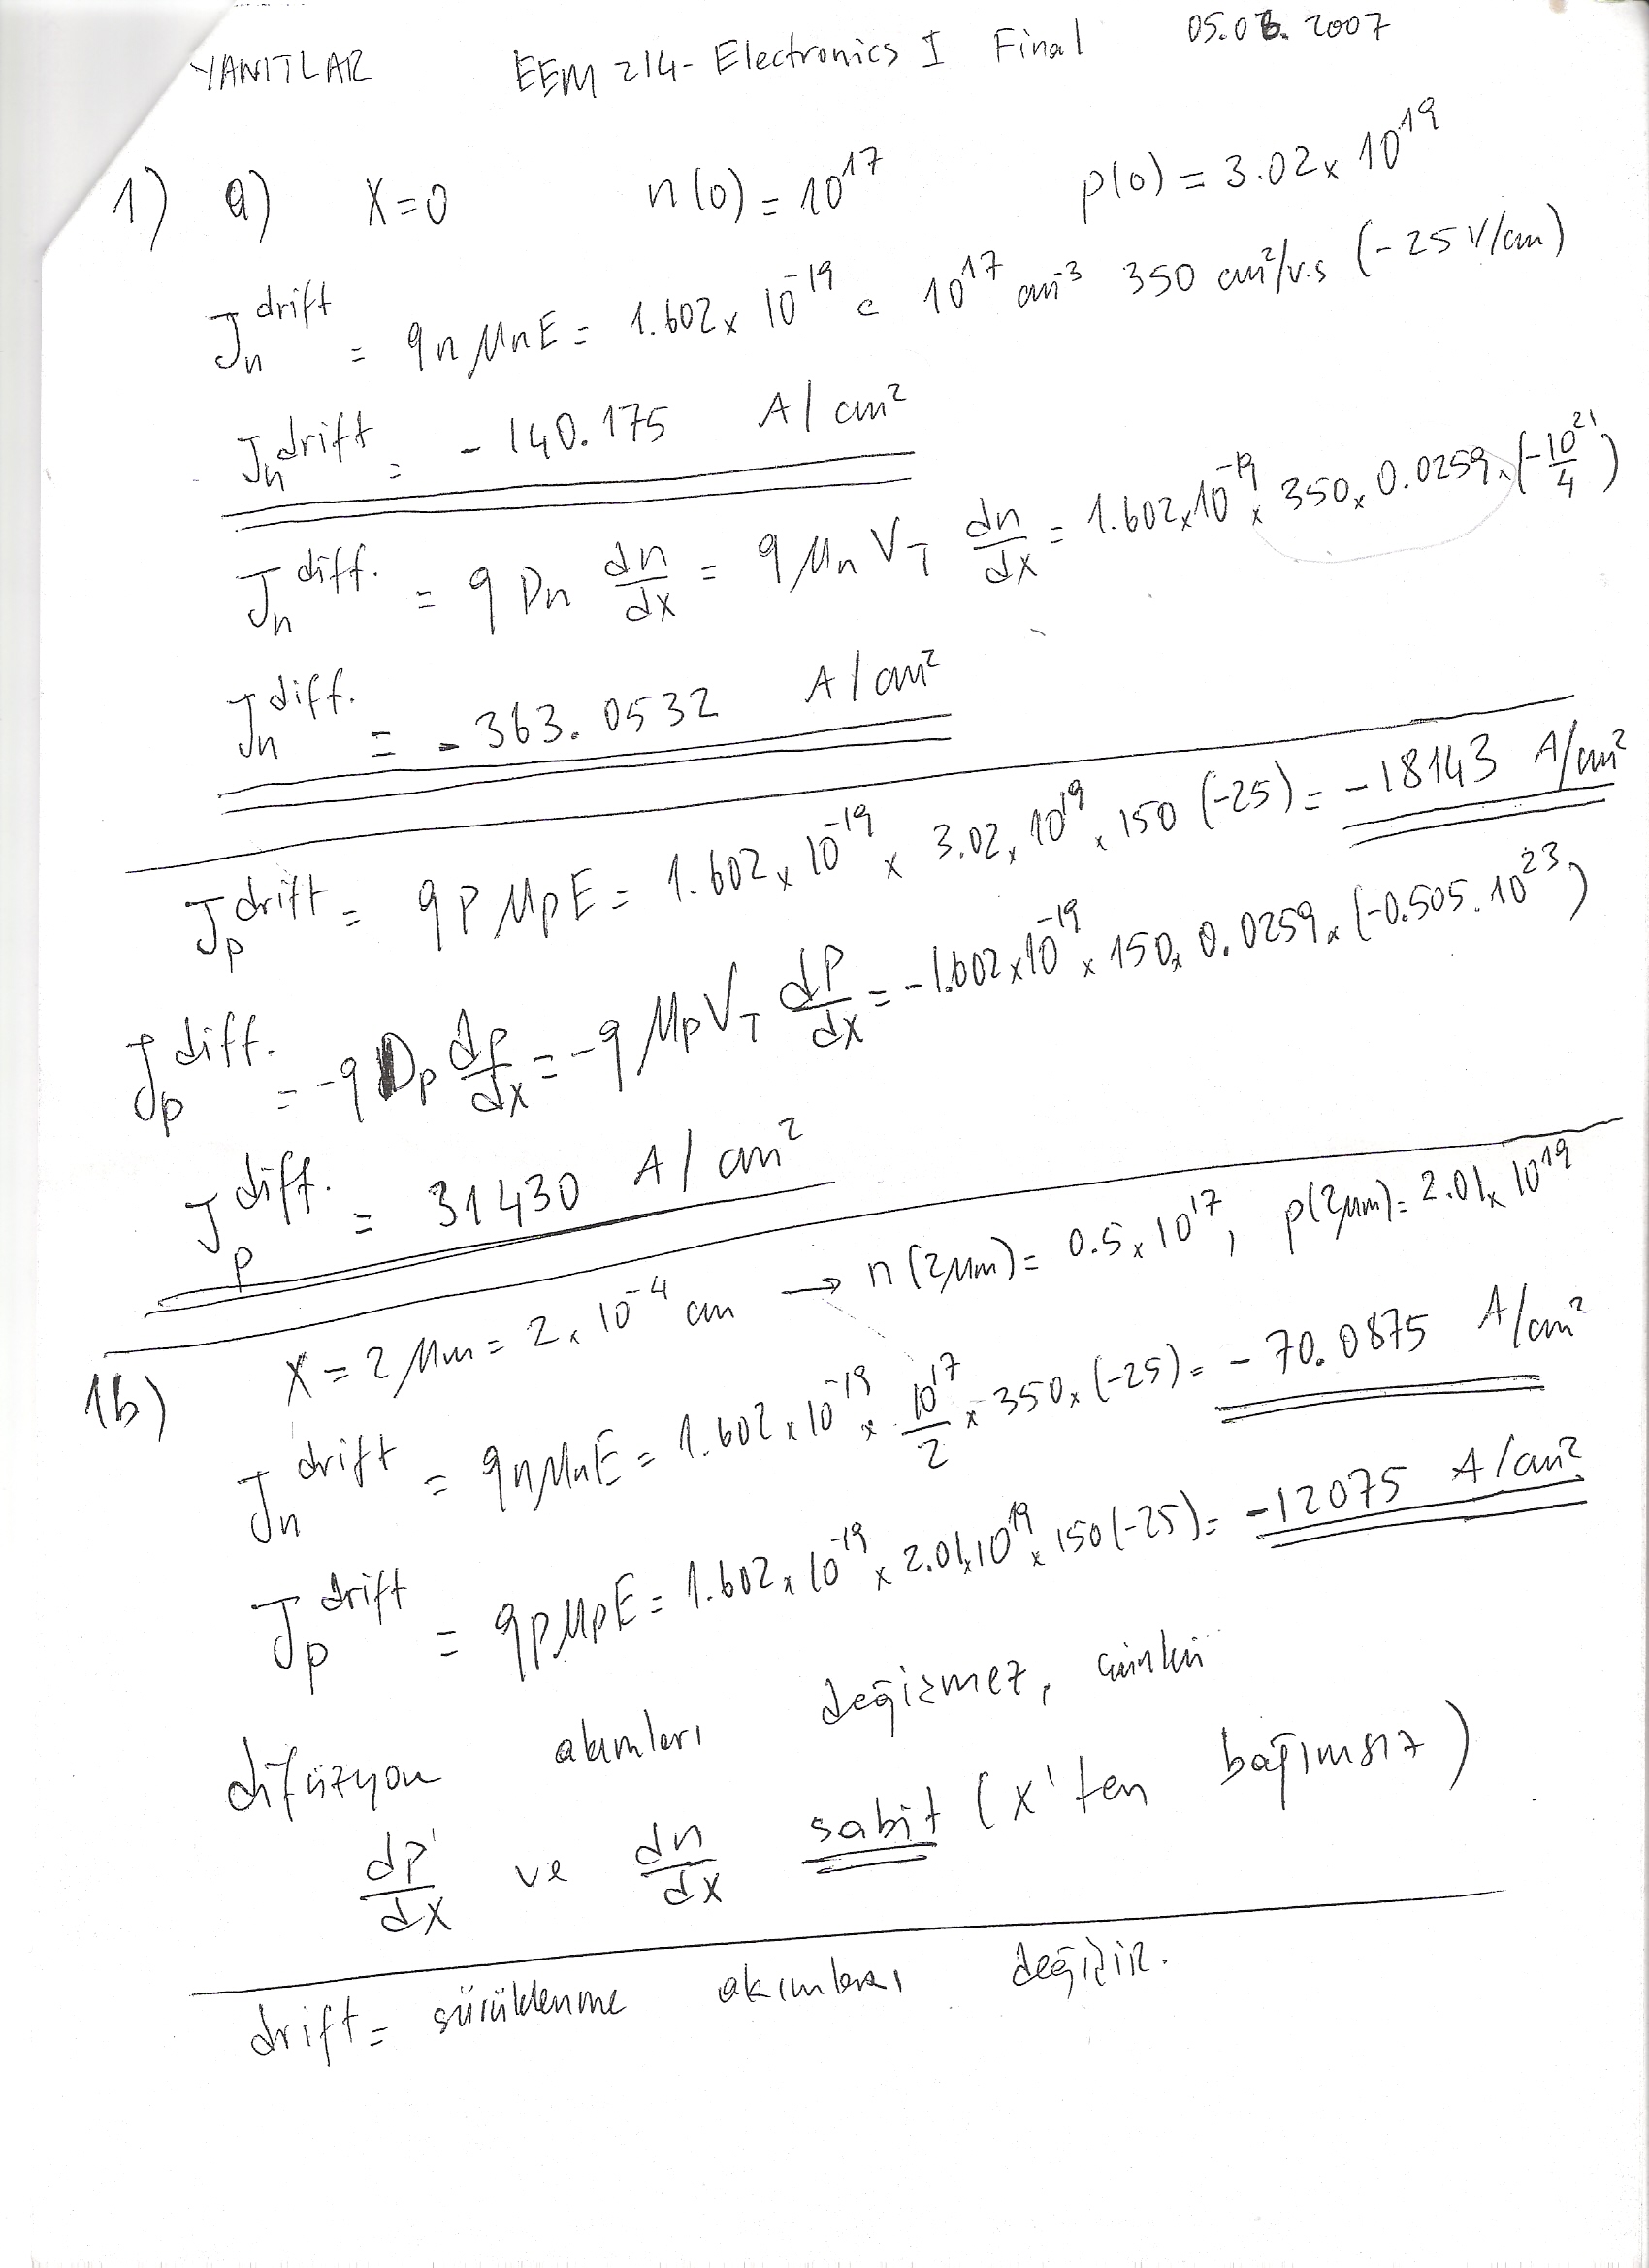 YANITLAR EEM 214- Electronics I Final 05.06.2007
1) a) X=0 n(0) = 10^17 p(0) = 3.02x 10^19
Jn^drift = qnμnE = 1.602x 10^-19 c 10^17 cm^-3 350 cm²/v.s (-25 V/cm)
Jn^drift = -140.175 A/cm²
Jn^diff. = q Dn dn/dx = q μn V_T dn/dx = 1.602x10^-19 x 350x 0.0259x (-10^21/4)
Jn^diff. = -363.0532 A/cm²
Jp^drift = qPμpE = 1.602x 10^-19 x 3.02x 10^19 x 150 (-25) = -18143 A/cm²
Jp^diff. = -q Dp dp/dx = -q μp V_T dP/dx = -1.602x10^-19 x 150x 0.0259x (-0.505.10^23)
Jp^diff. = 31430 A/cm²
1b) X = 2μm = 2x 10^-4 cm → n(2μm) = 0.5x 10^17, p(2μm) = 2.01x 10^19
Jn^drift = qnμnE = 1.602x 10^-19 x 10^17/2 x 350x (-25) = -70.0875 A/cm²
Jp^drift = qpμpE = 1.602x 10^-19 x 2.01x10^19 x 150(-25) = -12075 A/cm²
difüzyon akımları değişmez, çünkü
dp/dx ve dn/dx sabit (x'ten bağımsız)
drift = sürüklenme akımları değişir.